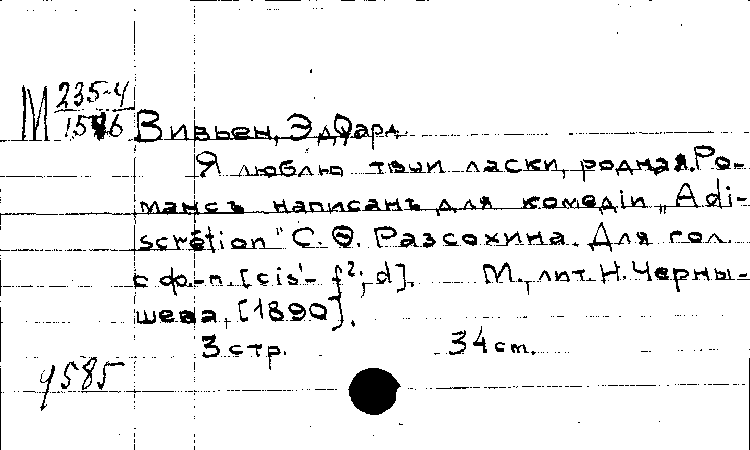 М 235-4
Вивьен, Эдуард.
Я люблю твои ласки, родная. Ро-
мансъ написанъ для комедiи „Adi-
scrétion" С. Ѳ. Разсохина. Для гол.
с ф.-п. [cis'- f²; d]. М., лит. Н. Черны-
шева, [1890].
3 стр. 34 cm.
9585